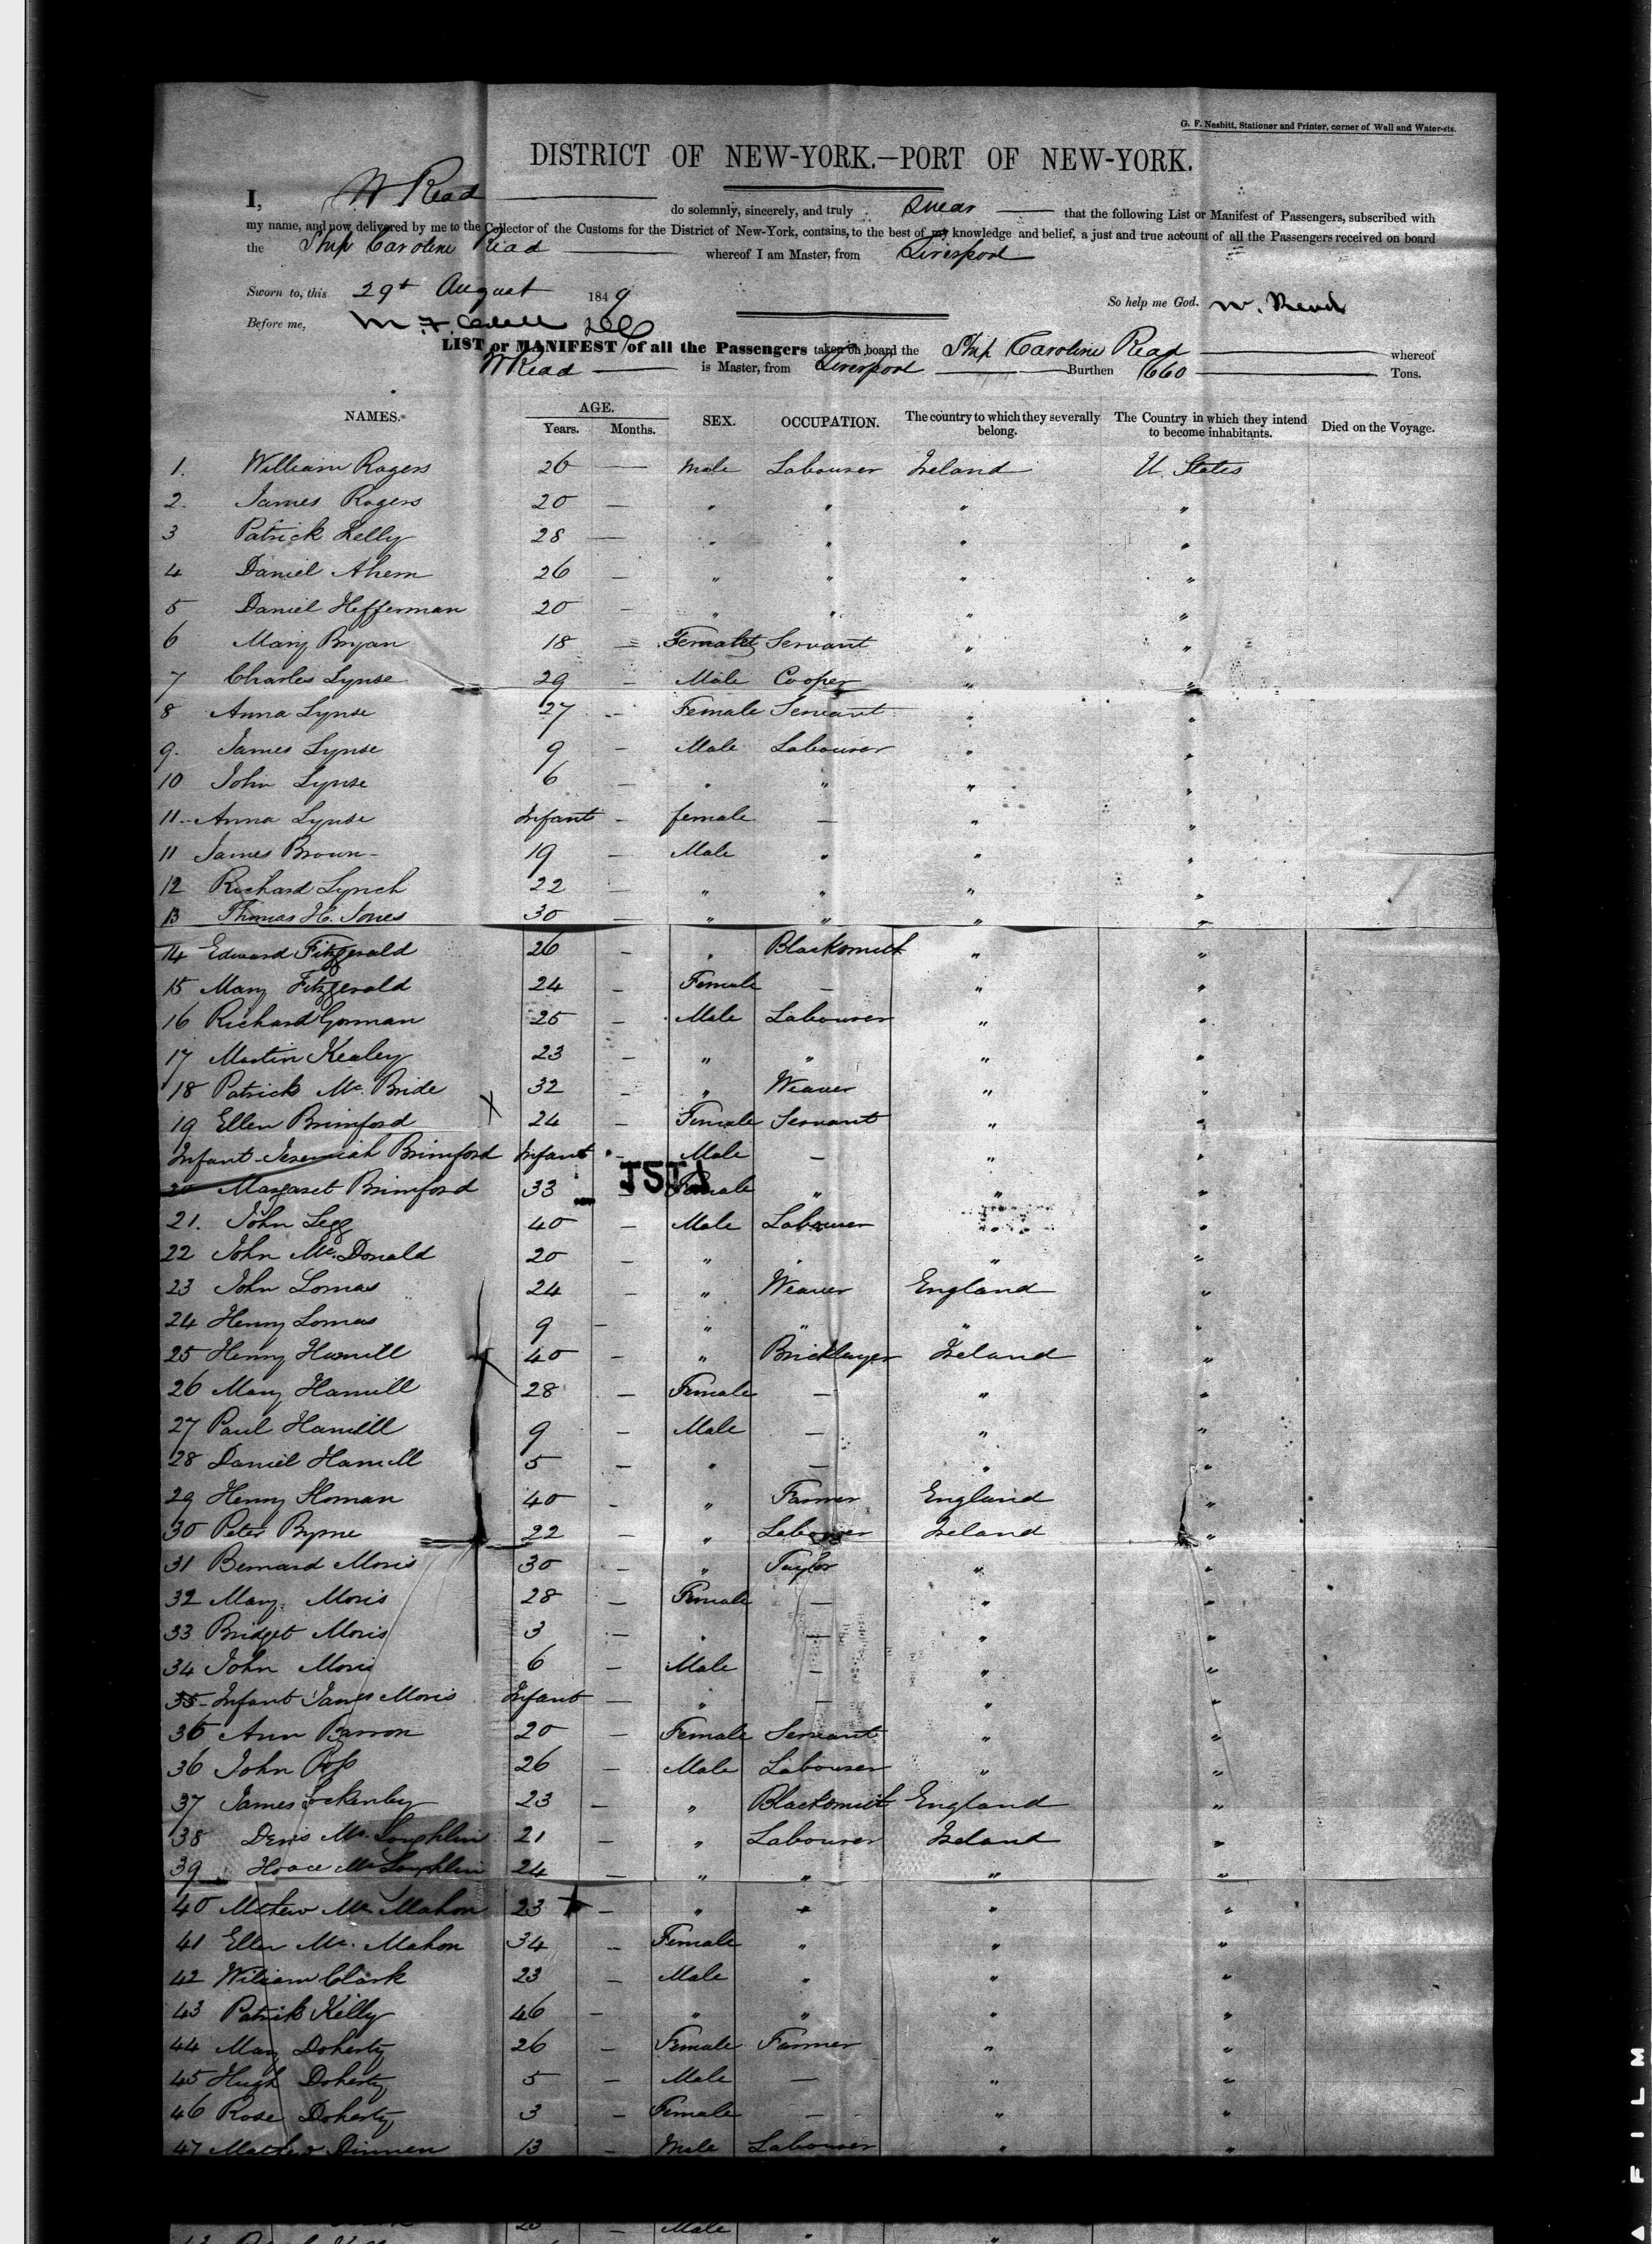 G. F. Nesbitt, Stationer and Printer, corner of Wall and Water-sts.
DISTRICT OF NEW-YORK.—PORT OF NEW-YORK.
I, W Read do solemnly, sincerely, and truly Swear that the following List or Manifest of Passengers, subscribed with
my name, and now delivered by me to the Collector of the Customs for the District of New-York, contains, to the best of my knowledge and belief, a just and true account of all the Passengers received on board
the Ship Caroline Read whereof I am Master, from Liverpool
Sworn to, this 29t August 1849 So help me God. W. Read
Before me,
LIST or MANIFEST of all the Passengers taken on board the Ship Caroline Read whereof
W Read is Master, from Liverpool Burthen 660 Tons.
NAMES. AGE. Years. Months. SEX. OCCUPATION. The country to which they severally belong. The Country in which they intend to become inhabitants. Died on the Voyage.
1. William Rogers 26 — Male Labourer Ireland U. States
2. James Rogers 20 — " " " "
3 Patrick Kelly 28 — " " " "
4 Daniel Ahern 26 — " " " "
5 Daniel Hefferman 20 — " " " "
6 Mary Bryan 18 — Female Servant " "
7 Charles Lynse 29 — Male Cooper " "
8 Anna Lynse 27 — Female Servant " "
9. James Lynse 9 — Male Labourer " "
10 John Lynse 6 — " " " "
11 Anna Lynse Infant — female — " "
11 James Brown 19 — Male " " "
12 Richard Lynch 22 — " " " "
13 Thomas H. Jones 30 — " " " "
14 Edward Fitzgerald 26 — " Blacksmith " "
15 Mary Fitzgerald 24 — Female — " "
16 Richard Gorman 25 — Male Labourer " "
17 Martin Kealey 23 — " " " "
18 Patrick Mc. Bride 32 — " Weaver " "
19 Ellen Brimford X 24 — Female Servant " "
Infant Jeremiah Brimford Infant — Male — " "
20 Margaret Brimford 33 — Female " " "
21. John Legg 40 — Male Labourer "
22 John Mc. Donald 20 — " " " "
23 John Lomas 24 — " Weaver England "
24 Henry Lomas 9 — " " " "
25 Henry Hamill 40 — " Bricklayer Ireland "
26 Mary Hamill 28 — Female — " "
27 Paul Hamill 9 — Male — " "
28 Daniel Hamill 5 — " — " "
29 Henry Homan 40 — " Farmer England "
30 Peter Byrne 22 — " Labourer Ireland "
31 Bernard Moris 30 — " Taylor " "
32 Mary Moris 28 — Female — " "
33 Bridget Moris 3 — " — " "
34 John Moris 6 — Male — " "
35 Infant James Moris Infant — " — " "
36 Ann Barron 20 — Female Servant " "
36 John Ross 26 — Male Labourer " "
37 James Lockenby 23 — " Blacksmith England "
38 Denis Mc. Loughlin 21 — " Labourer Ireland "
39 Mc Loughlin 24 — " " " "
40 Mathew Mc Mahon 23 — " " " "
41 Ellen Mc. Mahon 34 — Female " " "
42 William Clark 23 — Male " " "
43 Patrick Kelly 46 — " " " "
44 Mary Doherty 26 — Female Farmer " "
45 Hugh Doherty 5 — Male — " "
46 Rose Doherty 3 — Female — " "
47 Mathew Dinnen 13 — Male Labourer " "
Male
FILM